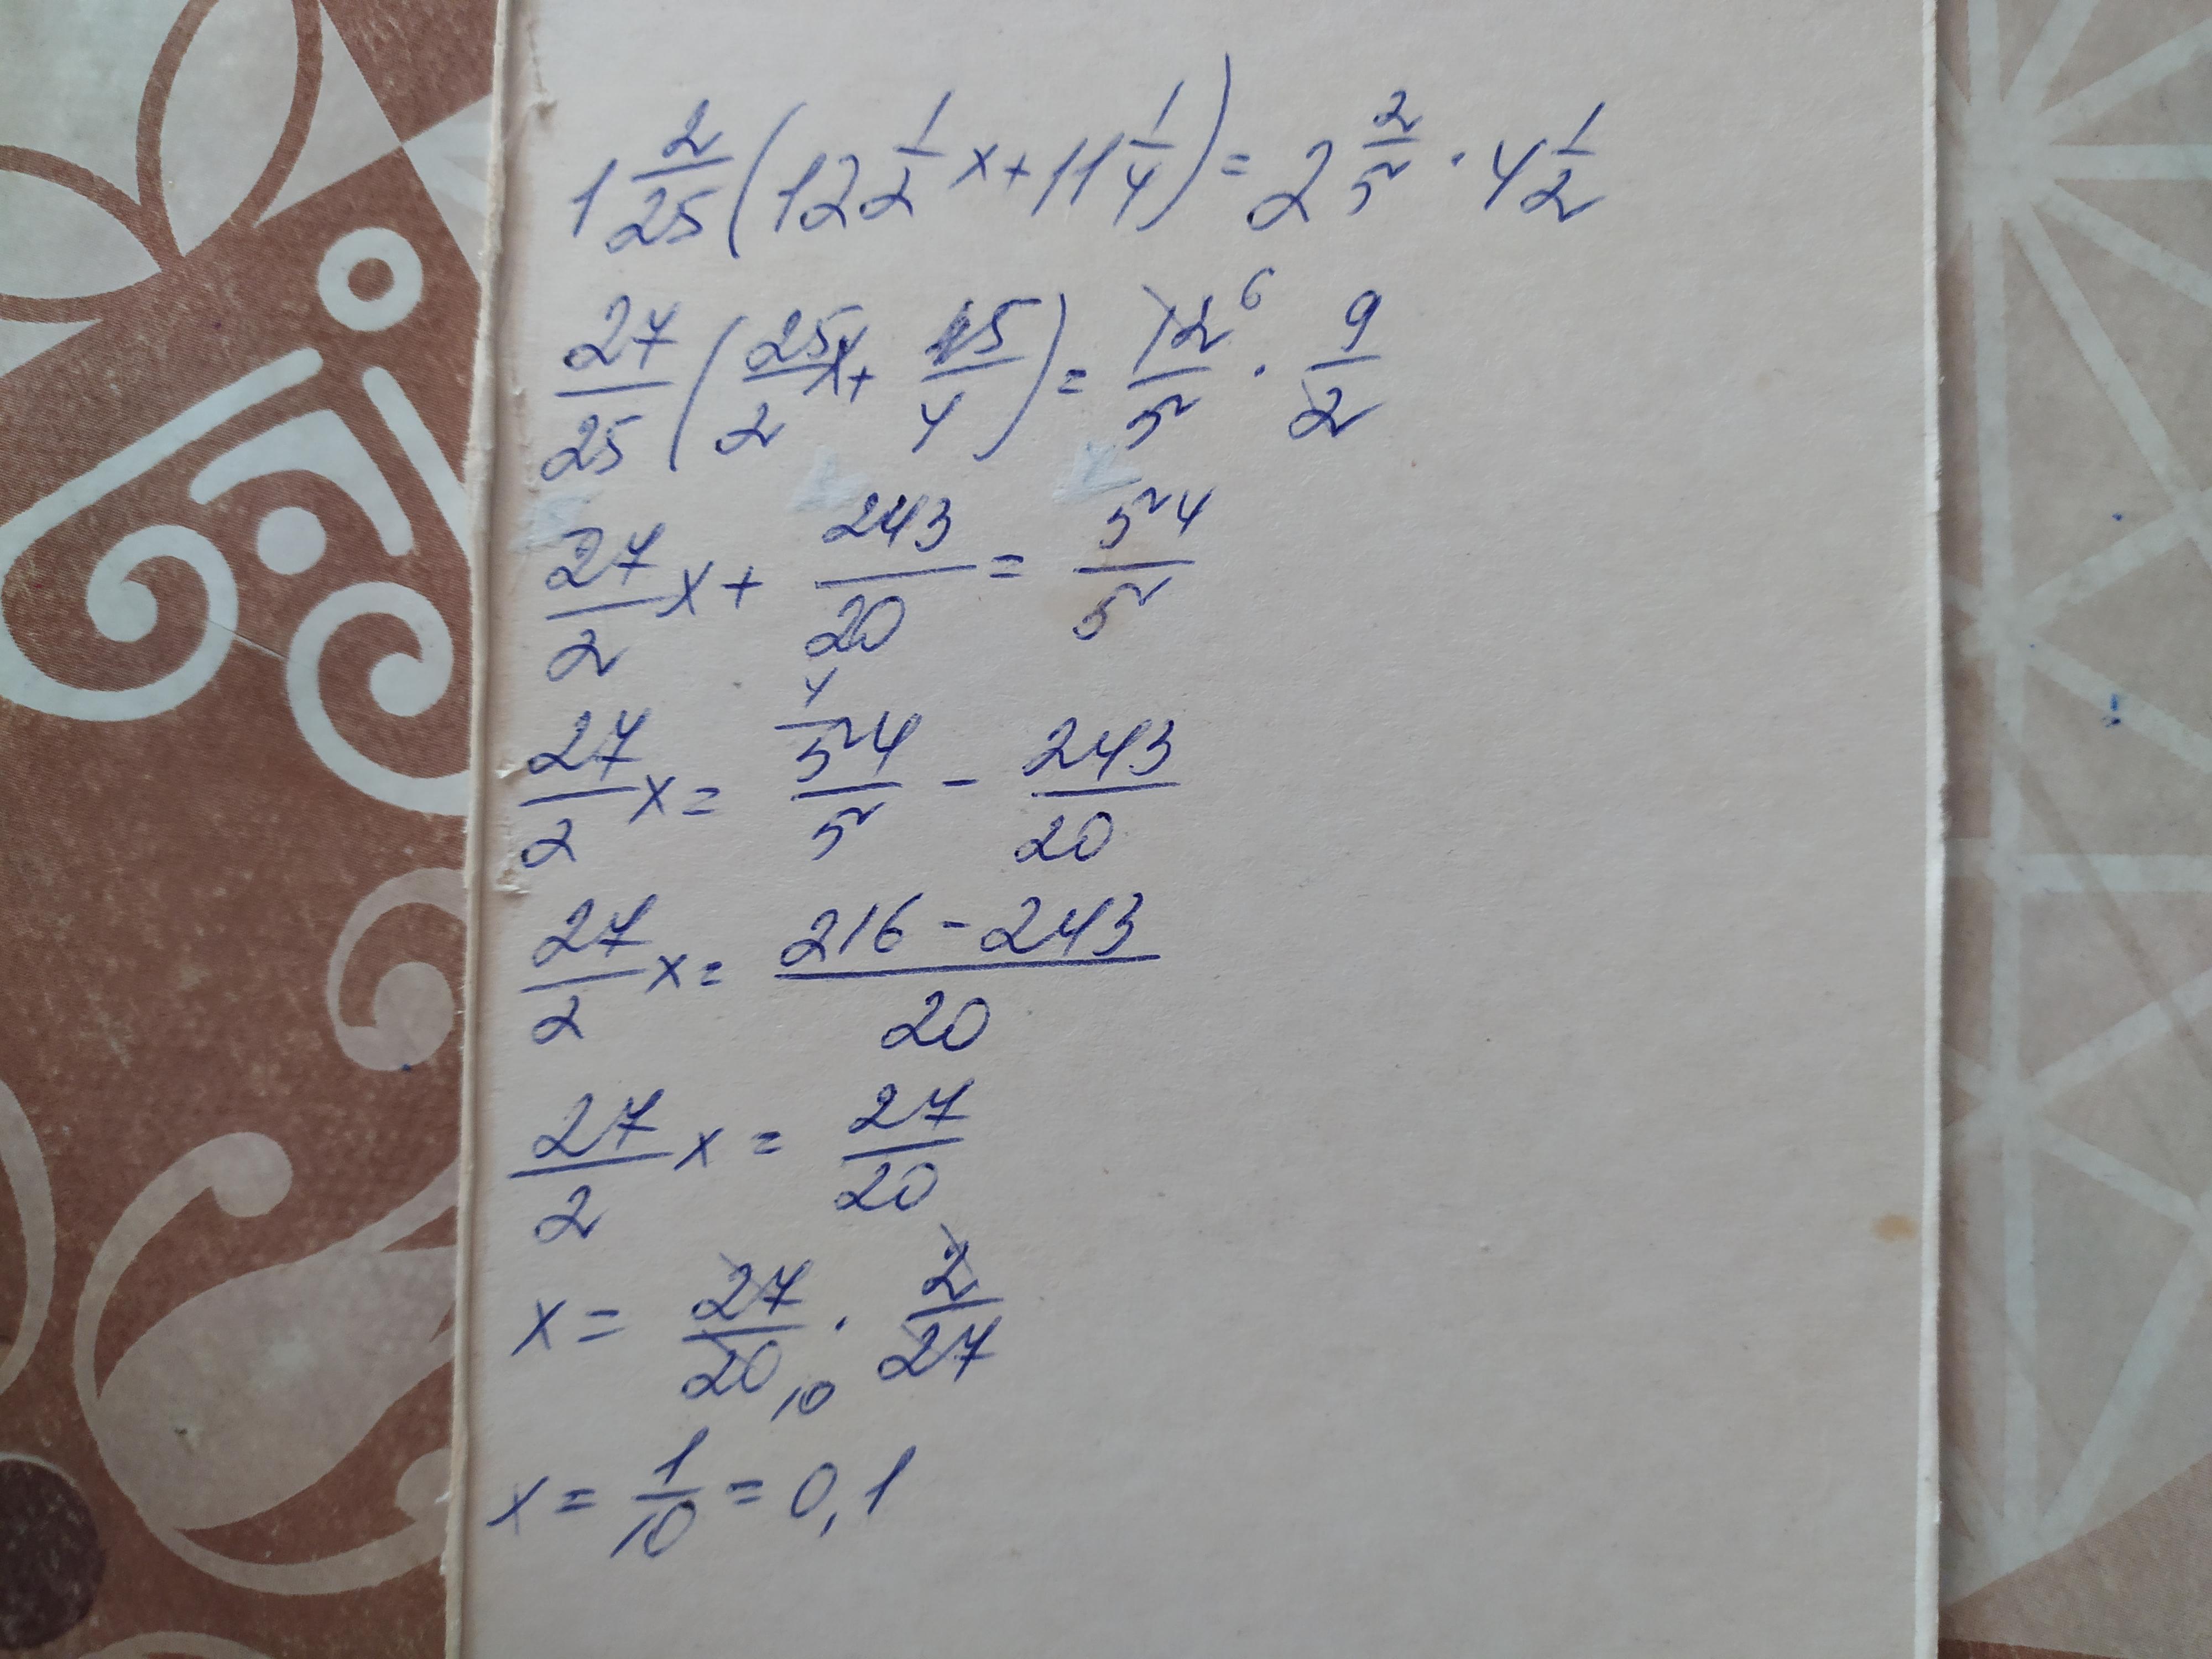 1 2/25 (12 1/2 x + 11 1/4) = 2 2/5 · 4 1/2
27/25 (25/2 x + 45/4) = 12/5 6 · 9/2
27/2 x + 243/20 = 54/5
27/2 x = 4 54/5 - 243/20
27/2 x = 216 - 243/20
27/2 x = 27/20
x = 27/20 10 · 2/27
x = 1/10 = 0,1